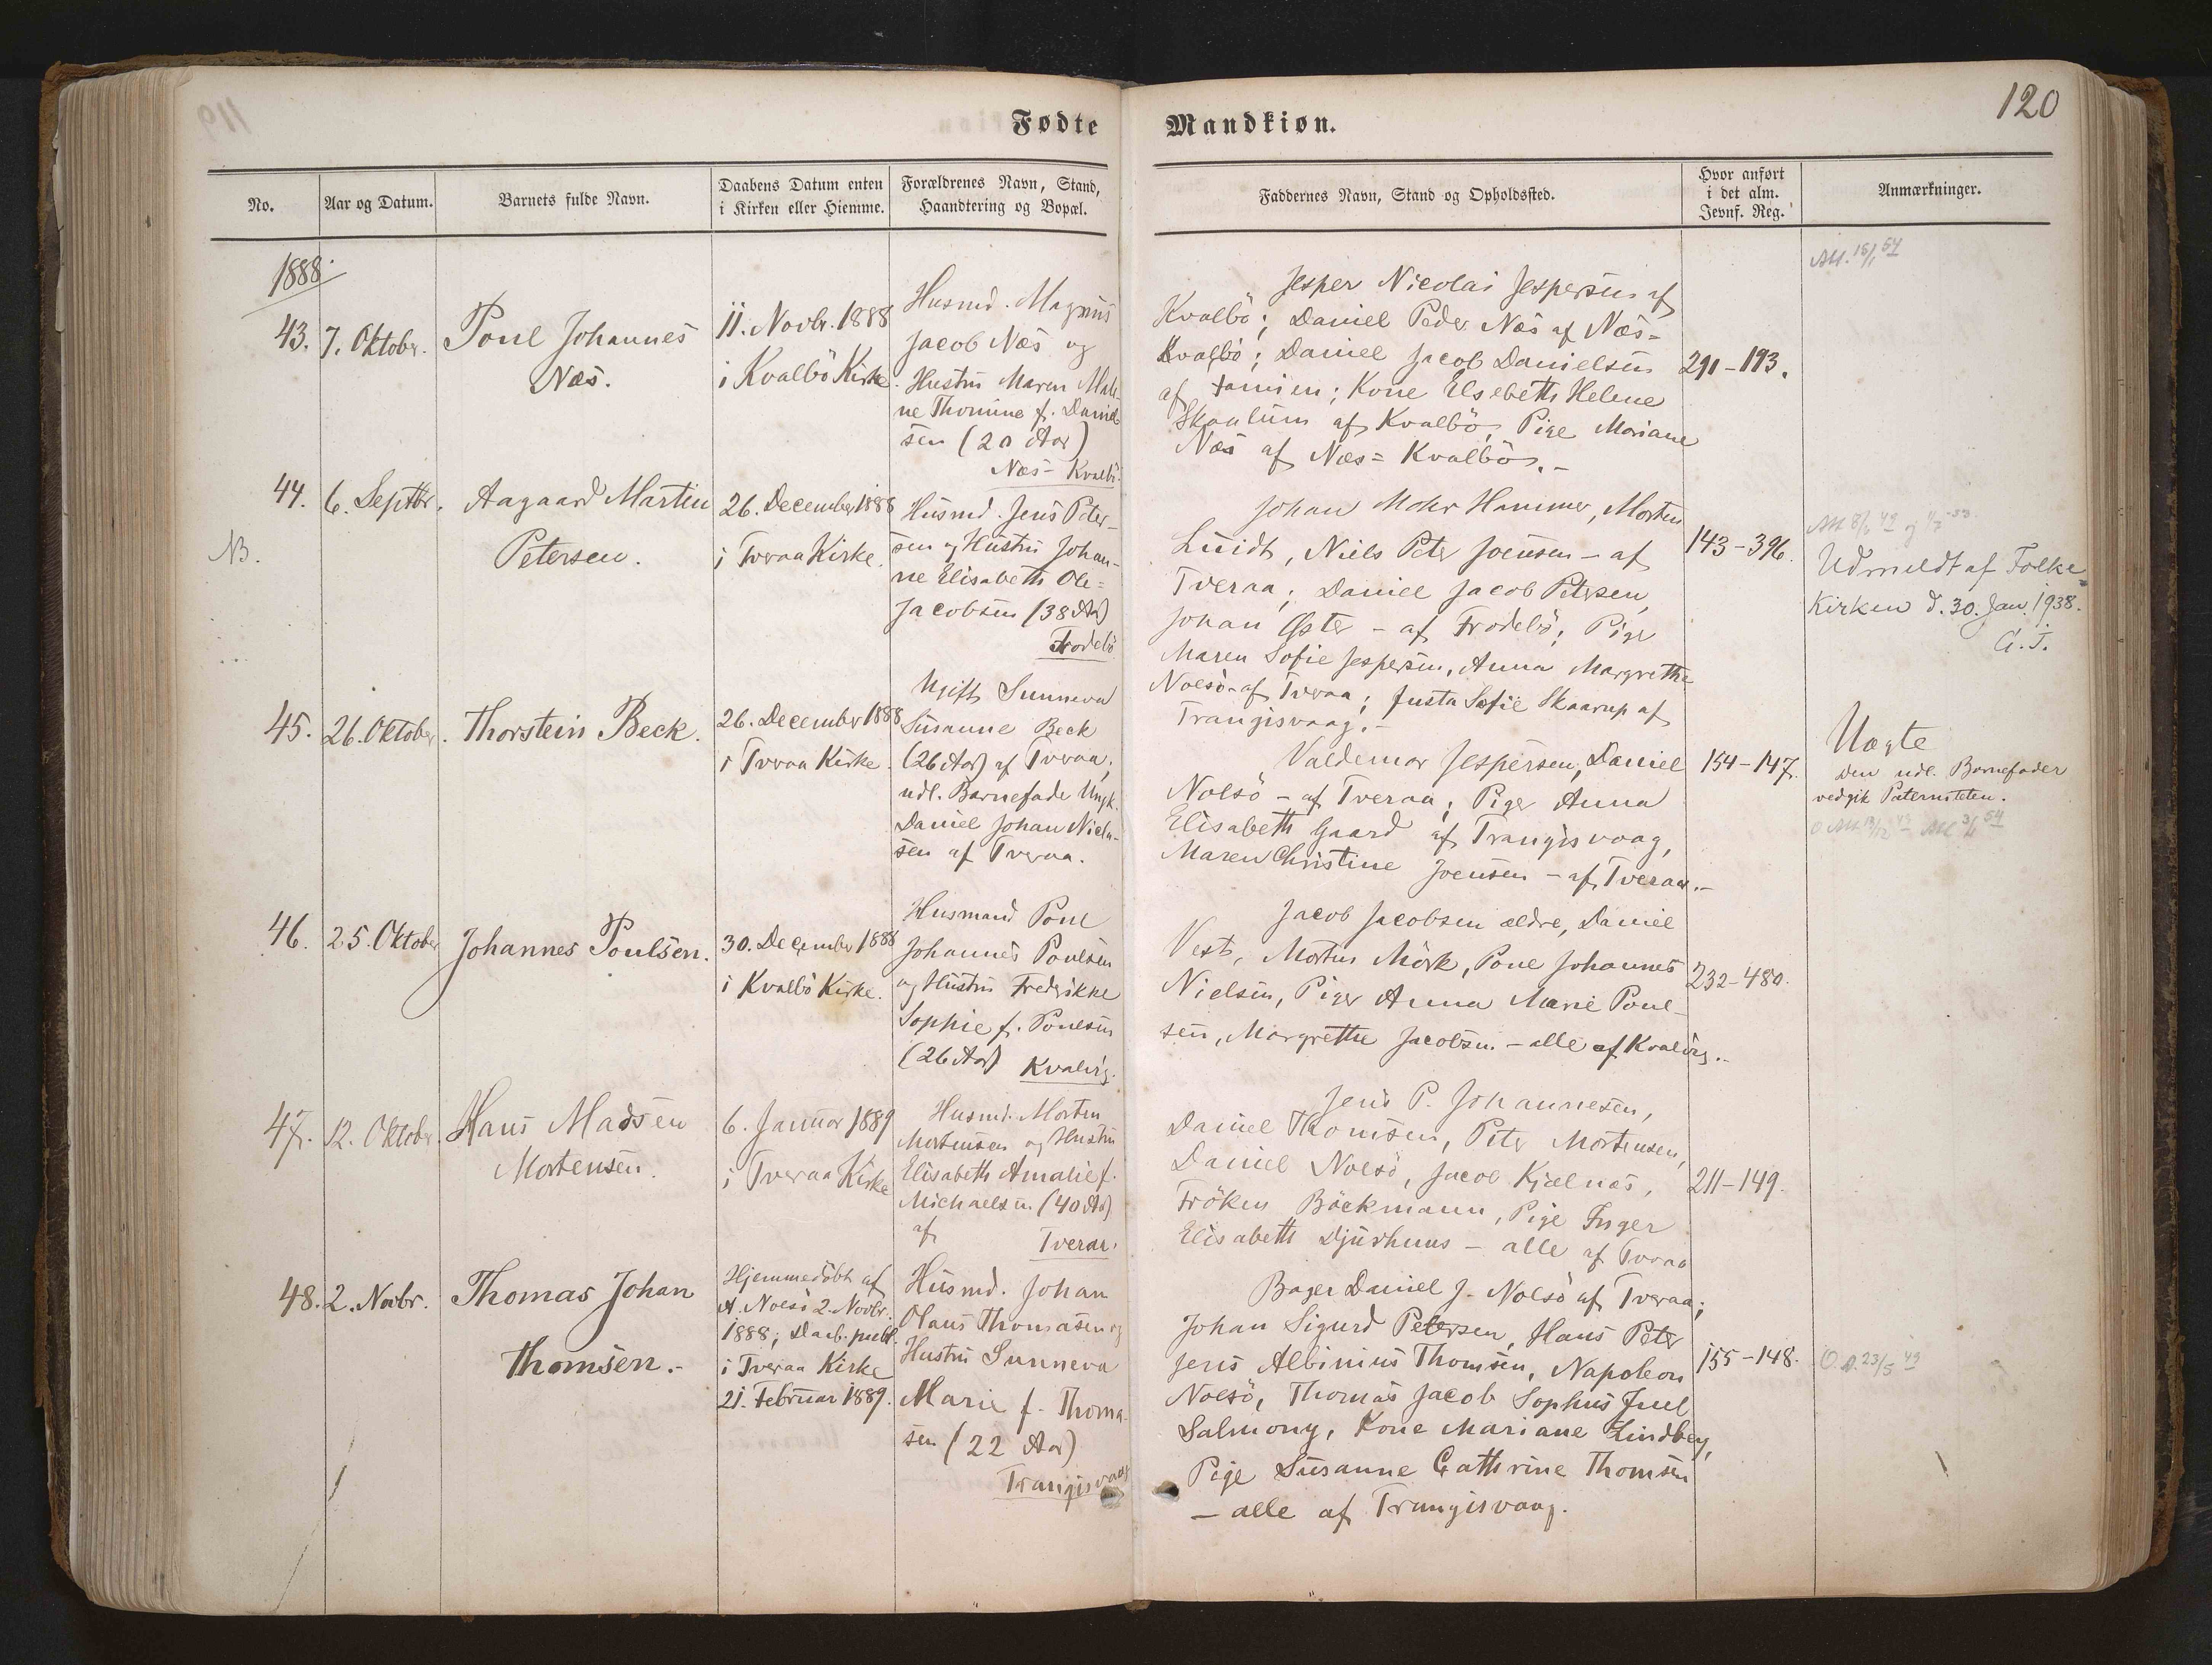 120
Fødte Mandkiøn.
No.
Aar og Datum.
Barnets fulde Navn.
Daabens Datum enten
i Kirken eller Hiemme.
Forældrenes Navn, Stand,
Haandtering og Bopæl.
Faddernes Navn, Stand og Opholdssted.
Hvor anført
i det alm.
Jevnf. Reg.
Anmærkninger.
1888.
43.
7. Oktobr.
Poul Johannes
Næs.
11. Novbr. 1888
i Kvalbö Kirke.
Husmd. Magnus
Jacob Næs og
Hustru Maren Male-
ne Thomine f. Daniel-
sen (20 Aar)
Næs-Kvalbö.
Jesper Nicolai Jespersen af
Kvalbö; Daniel Peder Næs af Næs=
Kvalbö; Daniel Jacob Danielsen
af Famien; Kone Elsebeth Helene
Skaalum af Kvalbö, Pige Mariane
Næs af Næs=Kvalbö.-
291-193.
Att. 18/1 54
44.
NB.
6. Septbr.
Aagaard Martin
Petersen.
26. December 1888
i Tveraa Kirke.
Husmd. Jens Peter-
sen og Hustru Johan-
ne Elisabeth Ole=
Jacobsen (38 Aar)
Frodebö
Johan Mohr Hammer, Morten
Luidt, Niels Peter Joensen - af
Tveraa; Daniel Jacob Petersen,
Johan Öster - af Frodebö; Piger
Maren Sofie Jespersen, Anna Margrethe
Nolsö-af Tveraa; Justa Sofie Skaarup af
Trangisvaag.-
143-396.
Udmeldt af Folke
Kirken d. 30. Jan. 1938.
45.
26. Oktober.
Thorstein Beck.
26. December 1888
i Tveraa Kirke.
Ugift Sunneva
Susanne Beck
(26 Aar) af Tveraa,
udl. Barnefader Ungk.
Daniel Johan Niel-
sen af Tveraa.
Valdemar Jespersen, Daniel
Nolsö - af Tveraa; Piger Anna
Elisabeth Gaard af Trangisvaag,
Maren Christine Joensen - af Tveraa.-
154-147.
Uægte
Den udl. Barnefader
vedgik Paterniteten.
46.
25. Oktober
Johannes Poulsen.
30. December 1888
i Kvalbö Kirke.
Husmand Poul
Johannes Poulsen
og Hustru Frederikke
Sophie f. Poulsen
(26 Aar) Kvalvig.
Jacob Jacobsen ældre, Daniel
Vest, Morten Mörk, Poul Johannes
Nielsen, Piger Anna Marie Poul-
sen, Margrethe Jacobsen. - alle af Kvalvig.-
232-480.
47.
12. Oktobr.
Hans Madsen
Mortensen.
6. Januar 1889
i Tveraa Kirke
Husmd. Morten
Mortensen og Hustru
Elisabeth Amalie f.
Michaelsen (40 Aar)
af Tveraa.
Jens P. Johannesen,
Daniel Thomsen, Peter Mortensen,
Daniel Nolsö, Jacob Kjælnæs,
Fröken Böckmann, Pige Inger
Elisabeth Djurhuus - alle af Tveraa
211-149.
48.
2. Novbr.
Thomas Johan
Thomsen.-
Hjemmedöbt af
A. Nolsö 2. Novbr.
1888; Daab. publ.
i Tveraa Kirke
21. Februar 1889.
Husmd. Johan
Olaus Thomasen og
Hustru Sunneva
Marie f. Thoma-
sen (22 Aar)
Trangisvaag
Bager Daniel J. Nolsö af Tveraa;
Johan Sigurd Petersen, Hans Peter
Jens Albinius Thomsen, Napoleon
Nolsö, Thomas Jacob Sophus Juul
Salmony, Kone Mariane Lindberg,
Pige Susanne Cathrine Thomsen
- alle af Trangisvaag.
155-148.